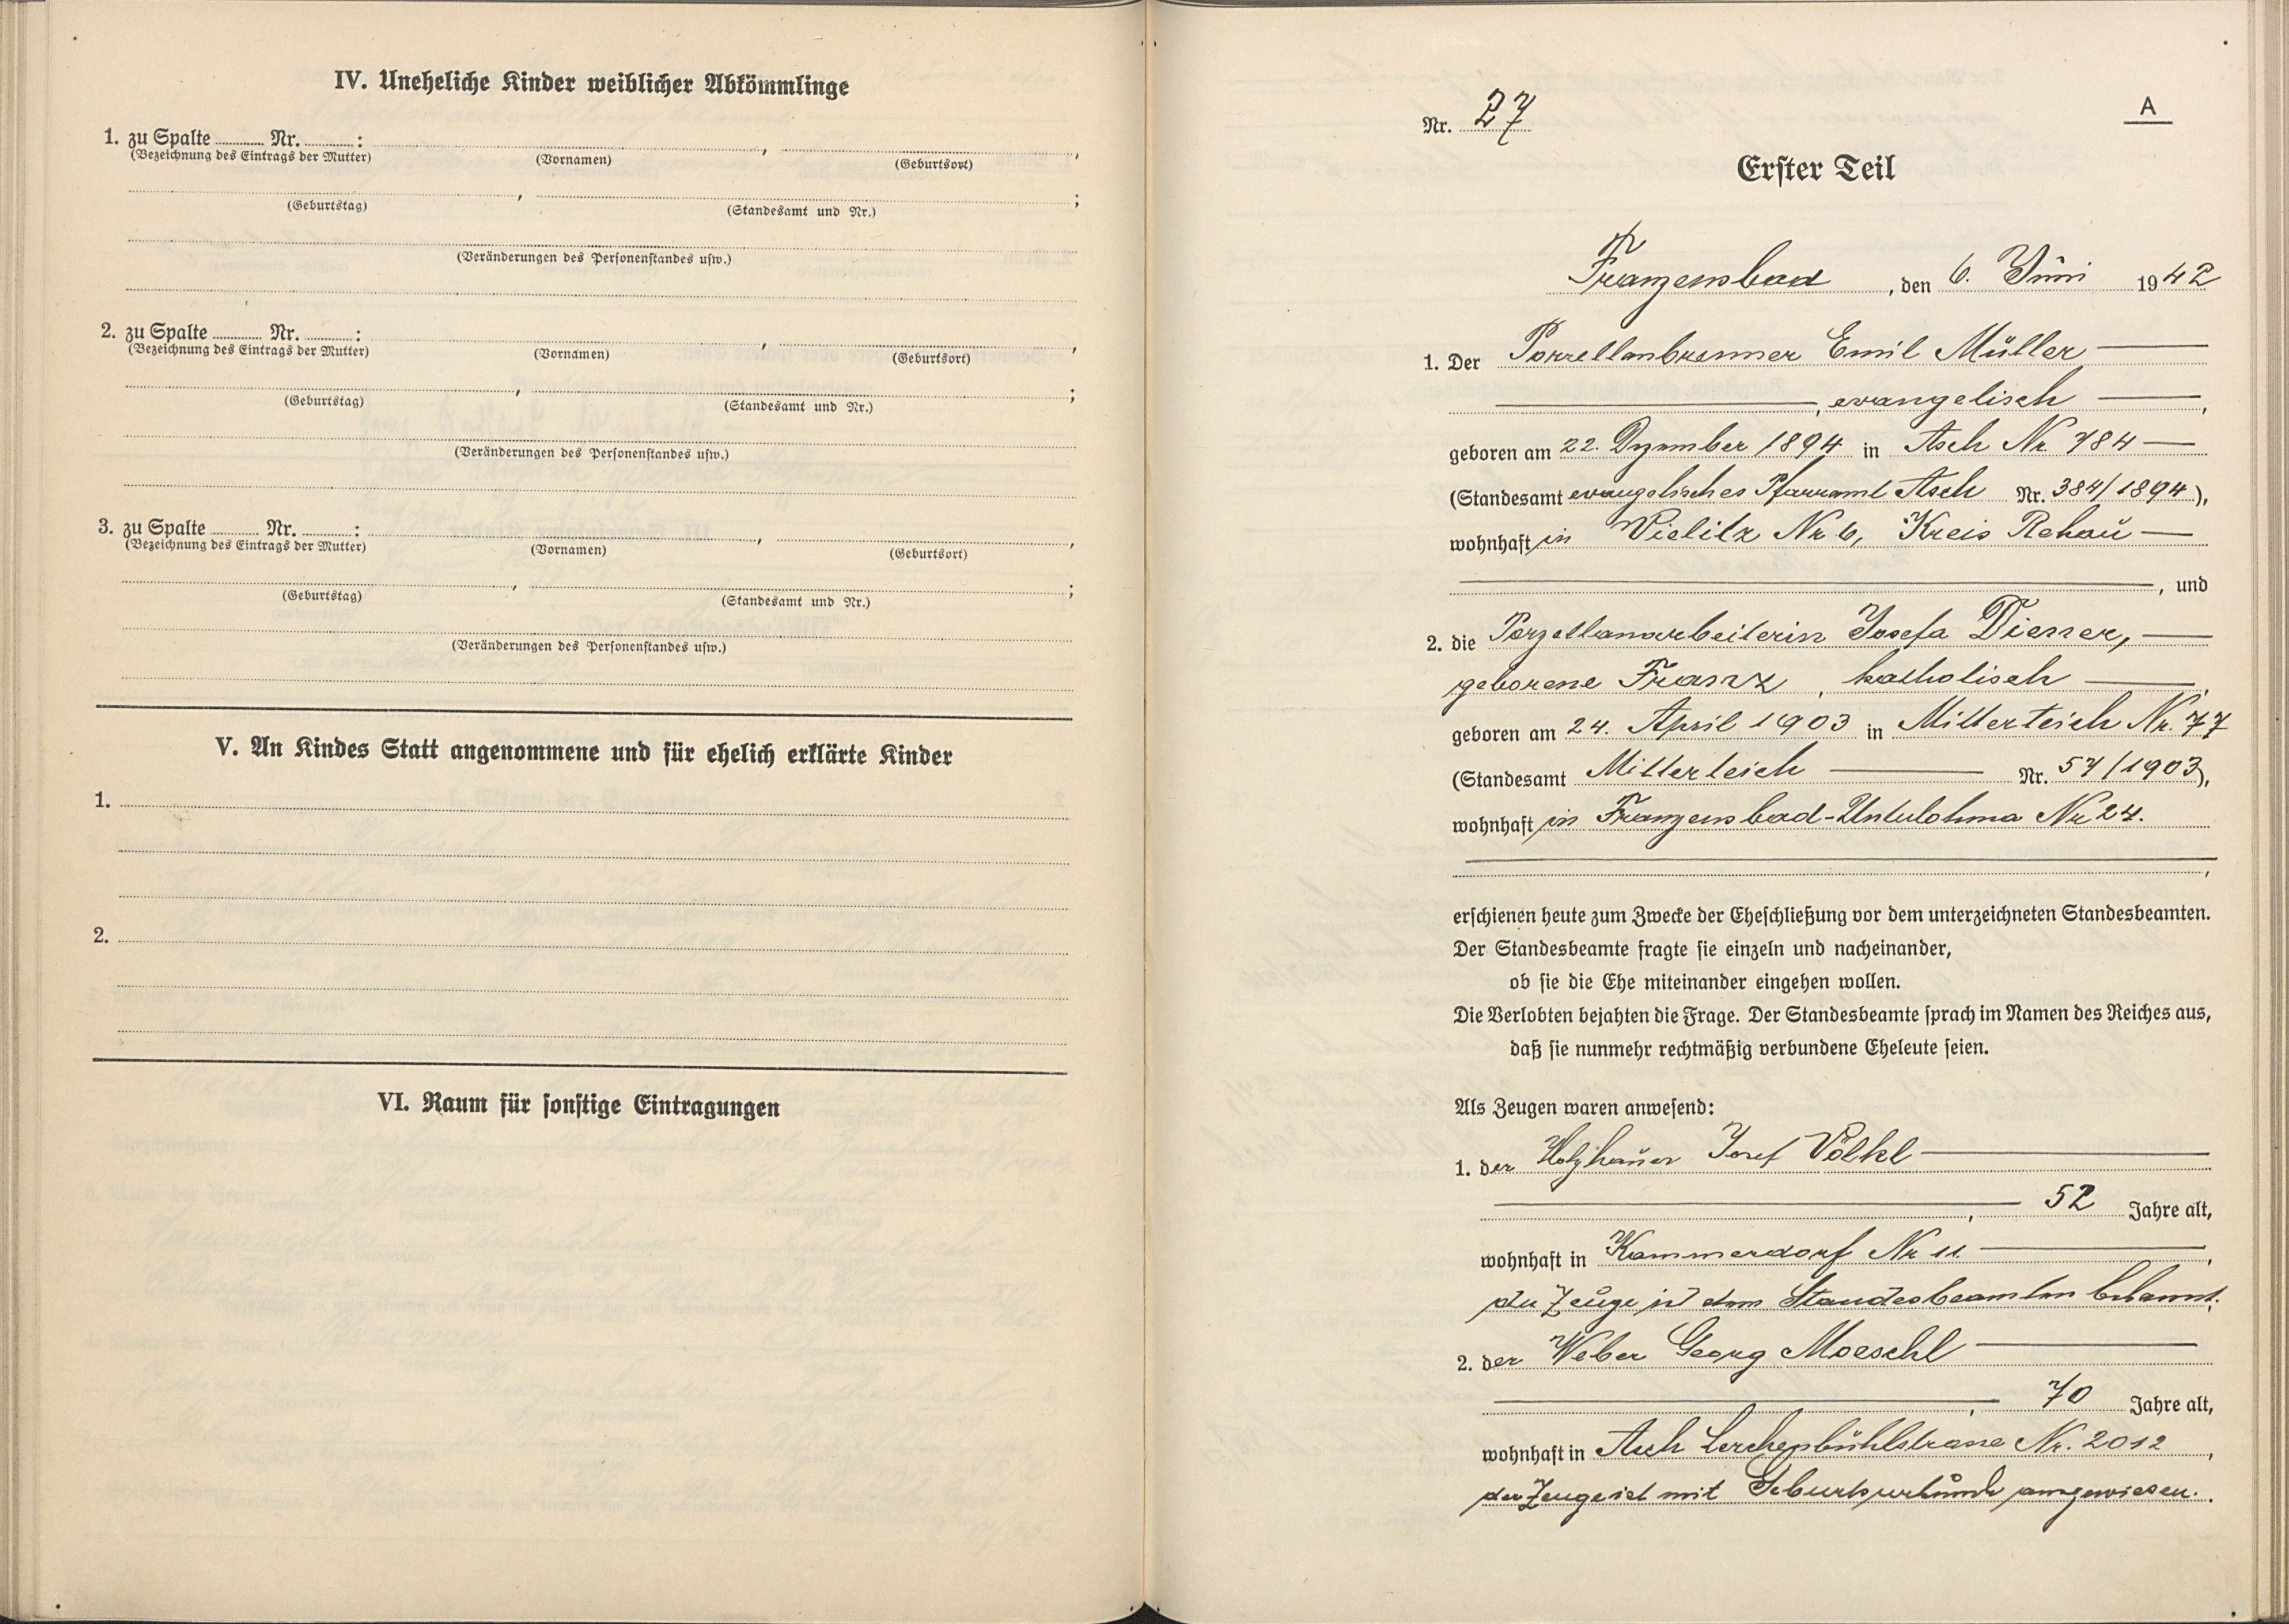 IV. Uneheliche Kinder weiblicher Abkömmlinge
1. zu Spalte ........ Nr. ........ :
(Bezeichnung des Eintrags der Mutter) (Vornamen) , (Geburtsort) ,
(Geburtstag) , (Standesamt und Nr.) ;
(Veränderungen des Personenstandes usw.)
2. zu Spalte ........ Nr. ........ :
(Bezeichnung des Eintrags der Mutter) (Vornamen) , (Geburtsort) ,
(Geburtstag) , (Standesamt und Nr.) ;
(Veränderungen des Personenstandes usw.)
3. zu Spalte ........ Nr. ........ :
(Bezeichnung des Eintrags der Mutter) (Vornamen) , (Geburtsort) ,
(Geburtstag) , (Standesamt und Nr.) ;
(Veränderungen des Personenstandes usw.)
V. An Kindes Statt angenommene und für ehelich erklärte Kinder
1.
2.
VI. Raum für sonstige Eintragungen
A
Nr. 27
Erster Teil
Franzensbad, den 6. Juni 1942
1. Der Porzellanbrenner Emil Müller
, evangelisch ,
geboren am 22. Dezember 1894 in Asch Nr. 784
(Standesamt evangelisches Pfarramt Asch Nr. 384/1894),
wohnhaft in Vielitz Nr 6, Kreis Rehau
, und
2. die Porzellanarbeiterin Josefa Diener,
geborene Franz, katholisch ,
geboren am 24. April 1903 in Mitterteich Nr. 77
(Standesamt Mitterteich Nr. 57/1903),
wohnhaft in Franzensbad-Unterlohma Nr 24.
,
erschienen heute zum Zwecke der Eheschließung vor dem unterzeichneten Standesbeamten.
Der Standesbeamte fragte sie einzeln und nacheinander,
ob sie die Ehe miteinander eingehen wollen.
Die Verlobten bejahten die Frage. Der Standesbeamte sprach im Namen des Reiches aus,
daß sie nunmehr rechtmäßig verbundene Eheleute seien.
Als Zeugen waren anwesend:
1. der Holzhauer Josef Völkl
, 52 Jahre alt,
wohnhaft in Kammerdorf Nr 11. ,
der Zeuge ist dem Standesbeamten bekannt.
2. der Weber Georg Moeschl
, 70 Jahre alt,
wohnhaft in Asch Lerchenbühlstrasse Nr. 2012 ,
der Zeuge ist mit Geburtsurkunde ausgewiesen.